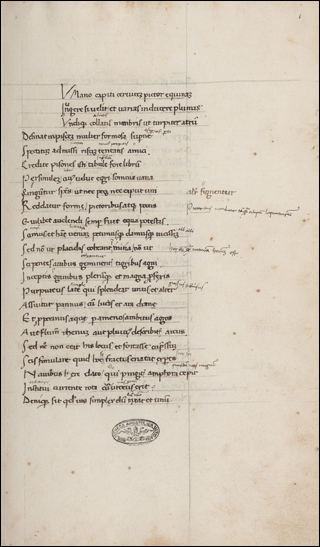 Umano capiti cervicem pictor equinam
Iungere si velit et varias inducere plumas
Undique collatis membris ut turpiter atrum
Desinat in piscem mulier formosa superne
Spectatum admissi risum teneatis amici
Credite pisones isti tabule fore librum
Persimilem cuius velut egri somnia vane
Fingentur species ut nec pes nec caput uni
alr finguntur
Reddatur forme pictoribus atque poetis
Quidlibet audendi semper fuit equa potestas
Scimus et hanc veniam petimusque damusque vicissim
Sed non ut placidis coeant inmitia non ut
Serpentes avibus geminentur tigribus agni
Inceptis gravibus plerumque et magna professis
Purpureus late qui splendeat unus et alter
Assuitur pannus cum lucus et ara diane
Et properantis aque per amenos ambitus agros
Aut flumen rhenum aut pluvius describitur arcus
Sed nunc non erat his locus et fortasse cupressum
Scis simulare quid hoc si fractis enatat expes
Navibus ere dato qui pingitur amphora cepit
Institui currente rota cur urceus exit
Denique sit quod vis simplex dum taxat et unum